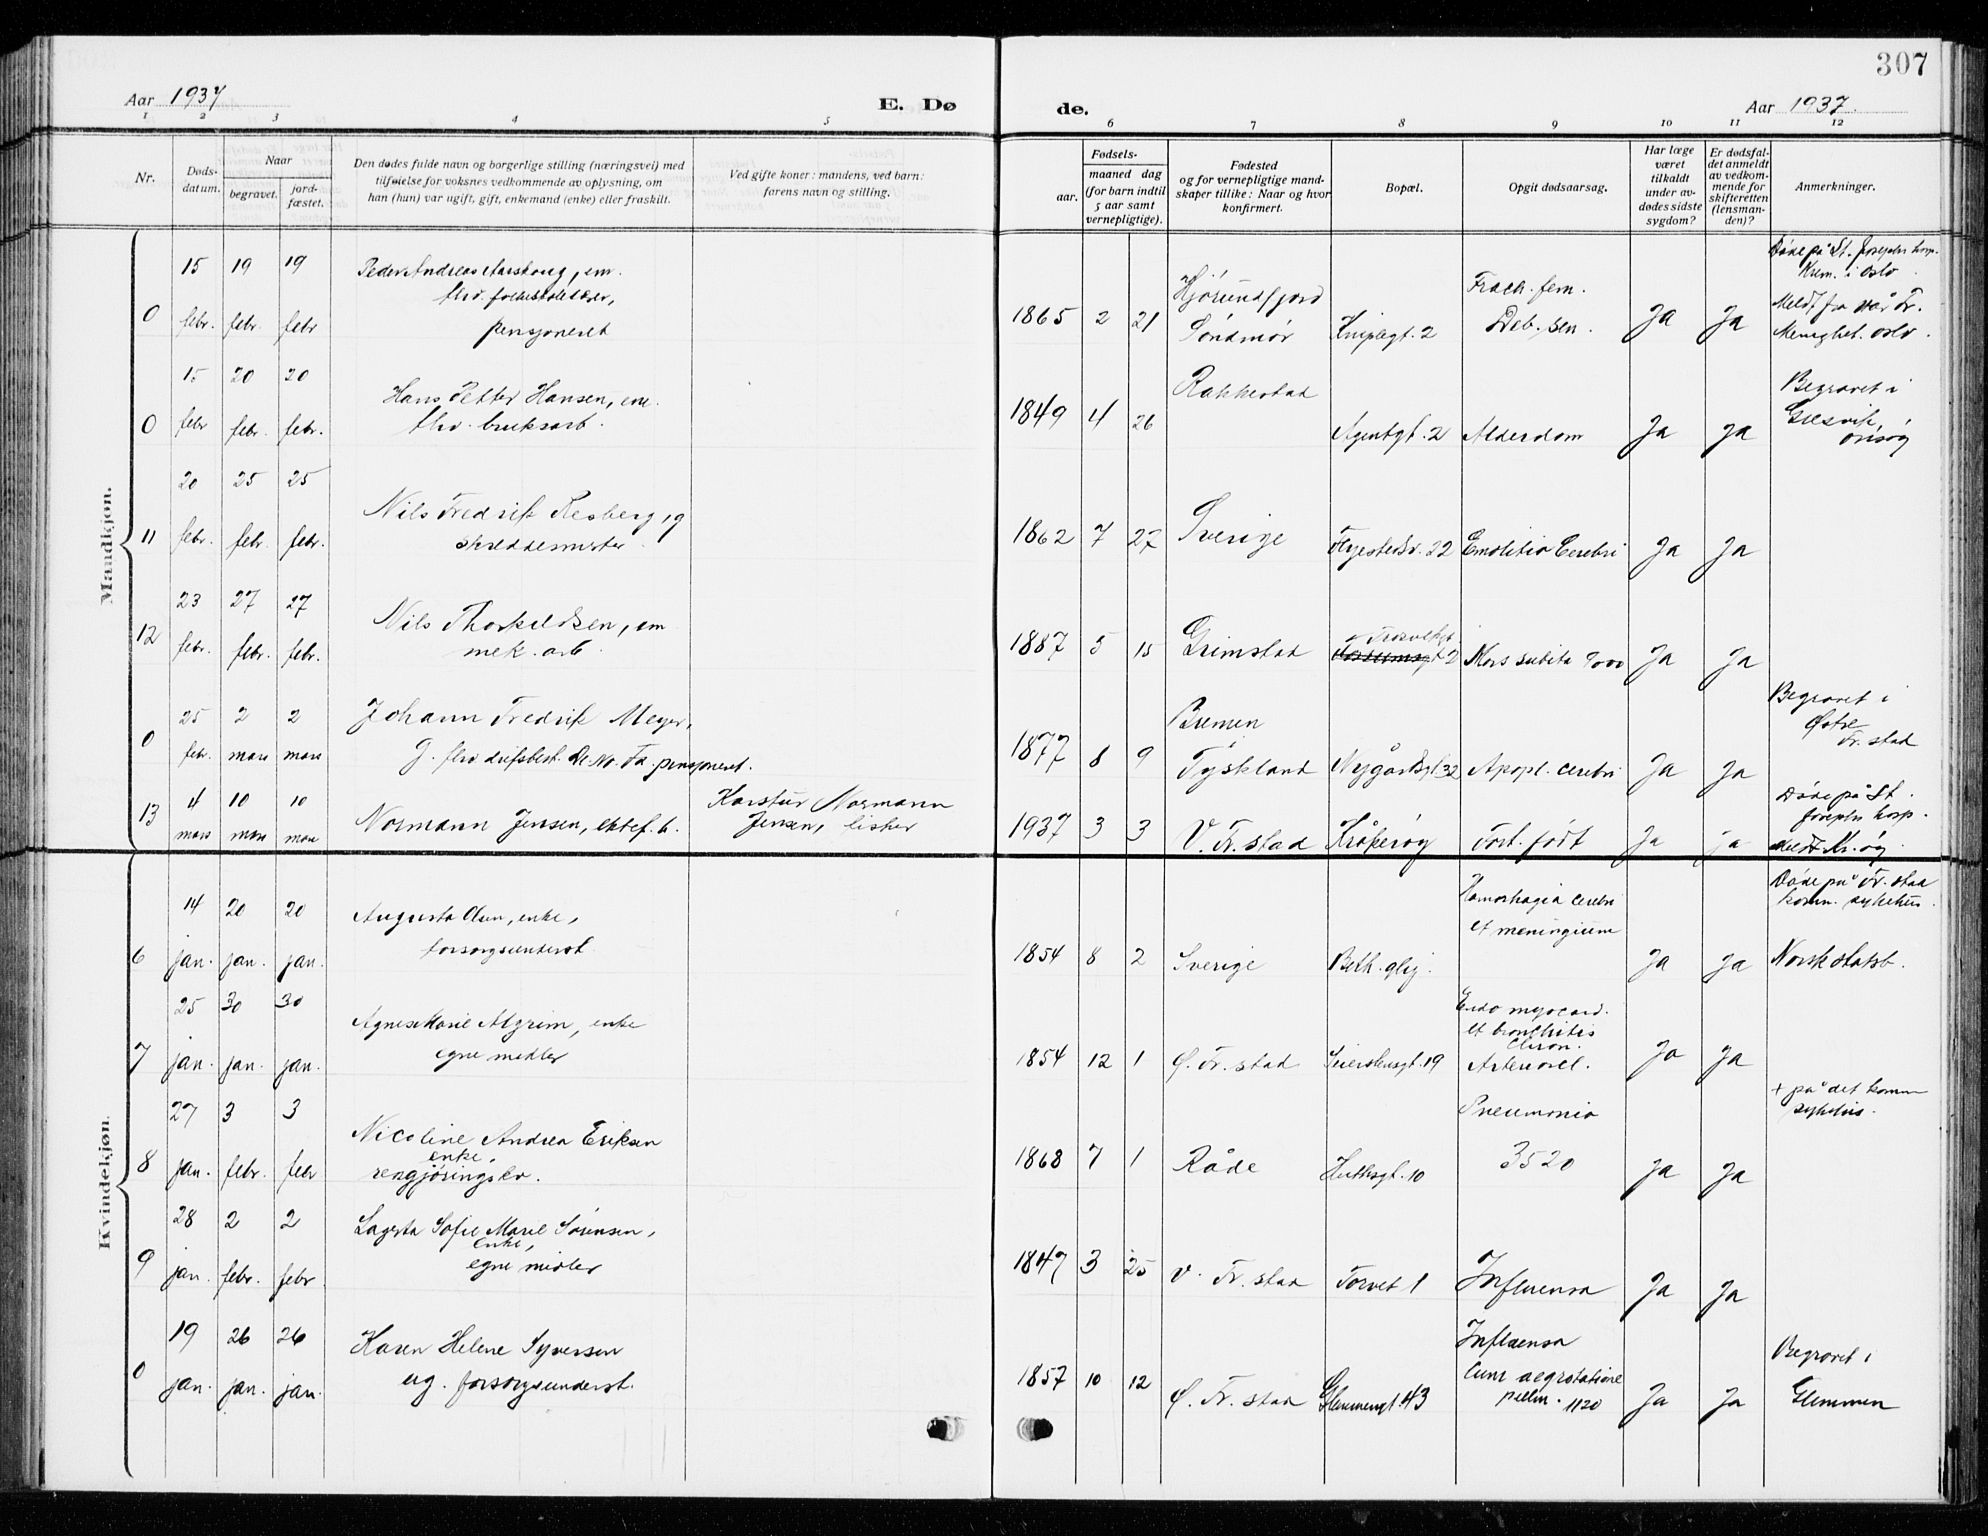 307
Aar 1937
E. Dø
de.
Aar 1937.
1 2 3 4 5 6 7 8 9 10 11 12
Nr.
Døds-
datum.
Naar
begravet.
jord-
fæstet.
Den dødes fulde navn og borgerlige stilling (næringsvei) med
tilføielse for voksnes vedkommende av oplysning, om
han (hun) var ugift, gift, enkemand (enke) eller fraskilt.
Ved gifte koner: mandens, ved barn:
farens navn og stilling.
Fødsels-
aar.
maaned dag
(for barn indtil
5 aar samt
vernepligtige).
Fødested
og for vernepligtige mand-
skaper tillike: Naar og hvor
konfirmert.
Bopæl.
Opgit dødsaarsag.
Har læge
været
tilkaldt
under av-
dødes sidste
sygdom?
Er dødsfal-
det anmeldt
av vedkom-
mende for
skifteretten
(lensman-
den)?
Anmerkninger.
Mandkjøn.
0 15 febr. 19 febr. 19 febr
Peder Andreas Aarskoug, em.
fhv. folkeskolelærer,
pensjoneret
1865 2 21
Hjørundfjord
Søndmør
Kniplegt. 2
Frach. fem.
Deb. sen.
Ja Ja
Døde på St. Josephs hosp.
Krem. i Oslo
Meldt fra Vår Fr.
Menighet. Oslo.
0 15 febr 20 febr. 20 febr.
Hans Petter Hansen, em.
fhv. bruksarb.
1849 4 26
Rakkestad
Agentgt. 2
Alderdom
Ja Ja
Begravet i
Gresvik
Onsøy
11 20 febr. 25 febr. 25 febr.
Nils Fredrik Resberg, g
skreddermester
1862 7 27
Sverige
22
Emolitio Cerebri
Ja Ja
12 23 febr. 27 febr. 27 febr.
Nils Thorkildsen, em
mek. arb.
1887 5 15
Grimstad
Trosvikgt.
2
Mors subita 9000
Ja Ja
0 25 febr. 2 mars 2 mars
Johann Fredrik Meyer,
g. fhv driftsbest. De No. Fa. pensjoneret.
1877 8 9
Bremen
Tyskland
Nygårdsgt 32
Apopl. cerebri
Ja Ja
Begravet i
Østre
Fr. stad
13 4 mars 10 mars 10 mars
Normann Jensen, ektef. b.
Normann
Jensen, fisker
1937 3 3
V. Fr. stad
Kråkerøy
Fort. født
Ja ja
Døde på St.
Josephs hosp.
meldt Kr.øy.
Kvindekjøn.
6 14 jan. 20 jan. 20 jan.
Augusta Olsen, enke,
forsorgsunderst.
1854 8 2
Sverige
Beth. glij.
Hæmorhagia cerebri
et meningium
Ja Ja
Døde på Fr. stad
komm. sykehus.
Norsk statsb.
7 25 jan. 30 jan. 30 jan.
Agnes Marie Algrim, enke
egne midler
1854 12 1
Ø. Fr. stad
Seierstensgt. 19
Endo myocard.
et bronchitis
Chron.
Arterioscl.
Ja Ja
8 27 jan. 3 febr. 3 febr
Nicoline Andrea Eriksen
enke,
rengjøringskv.
1868 7 1
Råde
Huthsgt. 10
Pneumonia
3520
Ja Ja
+ på det komm
sykehus.
9 28 jan. 2 febr. 2 febr.
Lagerta Sofie Marie Sørensen,
enke,
egne midler
1847 3 25
V. Fr. stad
Torvet 1
Influensa
Ja Ja
0 19 jan. 26 jan. 26 jan.
Karen Helene Syversen
ug. forsorgsunderst.
1857 10 12
Ø. Fr. stad
Glemmengt. 43
Influensa
cum aegrotatione
pulm. 1120
Ja Ja
Begravet i
Glemmen